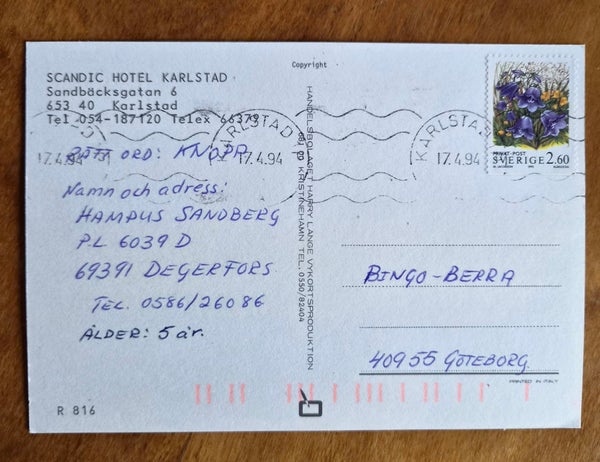 SCANDIC HOTEL KARLSTAD
Sandbäcksgatan 6
653 40 Karlstad
Tel 054-187120 Telex 66373
Copyright
KARLSTAD
17.4.94
KARLSTAD
17.4.94
KARLSTAD
17.4.94
PRIVAT-POST
SVERIGE 2.60
RÄTT ORD: KNOPP
Namn och adress:
HAMPUS SANDBERG
PL 6039 D
69391 DEGERFORS
TEL. 0586/26086
ÅLDER: 5 år.
HANDELSBOLAGET HARRY LANGE VYKORTSPRODUKTION
681 03 KRISTINEHAMN TEL. 0550/82404
BINGO-BERRA
40955 GÖTEBORG
PRINTED IN ITALY
R 816